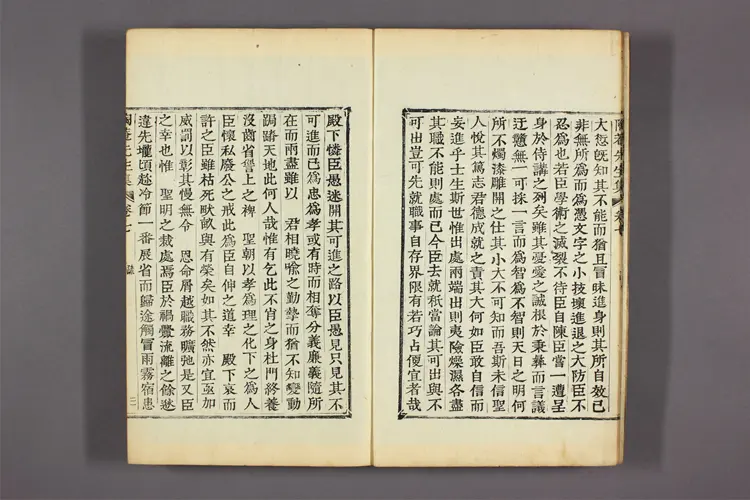 大愆旣知其不能而猶且冒昧進身則其所自效已
非無所爲而爲憑文字之小技壞進退之大防臣不
忍爲也若臣學術之滅裂不待臣自陳臣嘗一遭呈
身於侍講之列矣雖其憂愛之誠根於秉彝而言議
迂戇無一可採一言而爲智爲不智則天日之明何
所不燭漆雕開之仕其小大不可知而吾斯未信聖
人悅其篤志君德成就之責其大何如臣敢自信而
妄進乎士生斯世惟出處兩端出則夷險燥濕各盡
其職不能則處而已今臣去就秪當論其可出與不
可出豈可先就職事自存界限有若巧占便宜者哉
殿下憐臣愚迷開其可進之路以臣愚見只見其不
可進而已爲忠爲孝或有時而相奪分義廉義隨所
在而兩盡雖以 君相曉喩之勤摯而猶不知變動
跼蹐天地此何人哉惟有乞此不肖之身杜門終養
沒齒省愆上之裨 聖朝以孝爲理之化下之爲人
臣懷私廢公之戒此爲臣自伸之道幸 殿下哀而
許之臣雖枯死畎畝與有榮矣如其不然亦宜亟加
威罰以彰其慢無令 恩命屑越職務曠弛是又臣
之幸也惟 聖明之裁處焉臣於禍釁流離之餘逖
違先壠頃趁冷節一番展省而歸途觸冒雨霧宿患